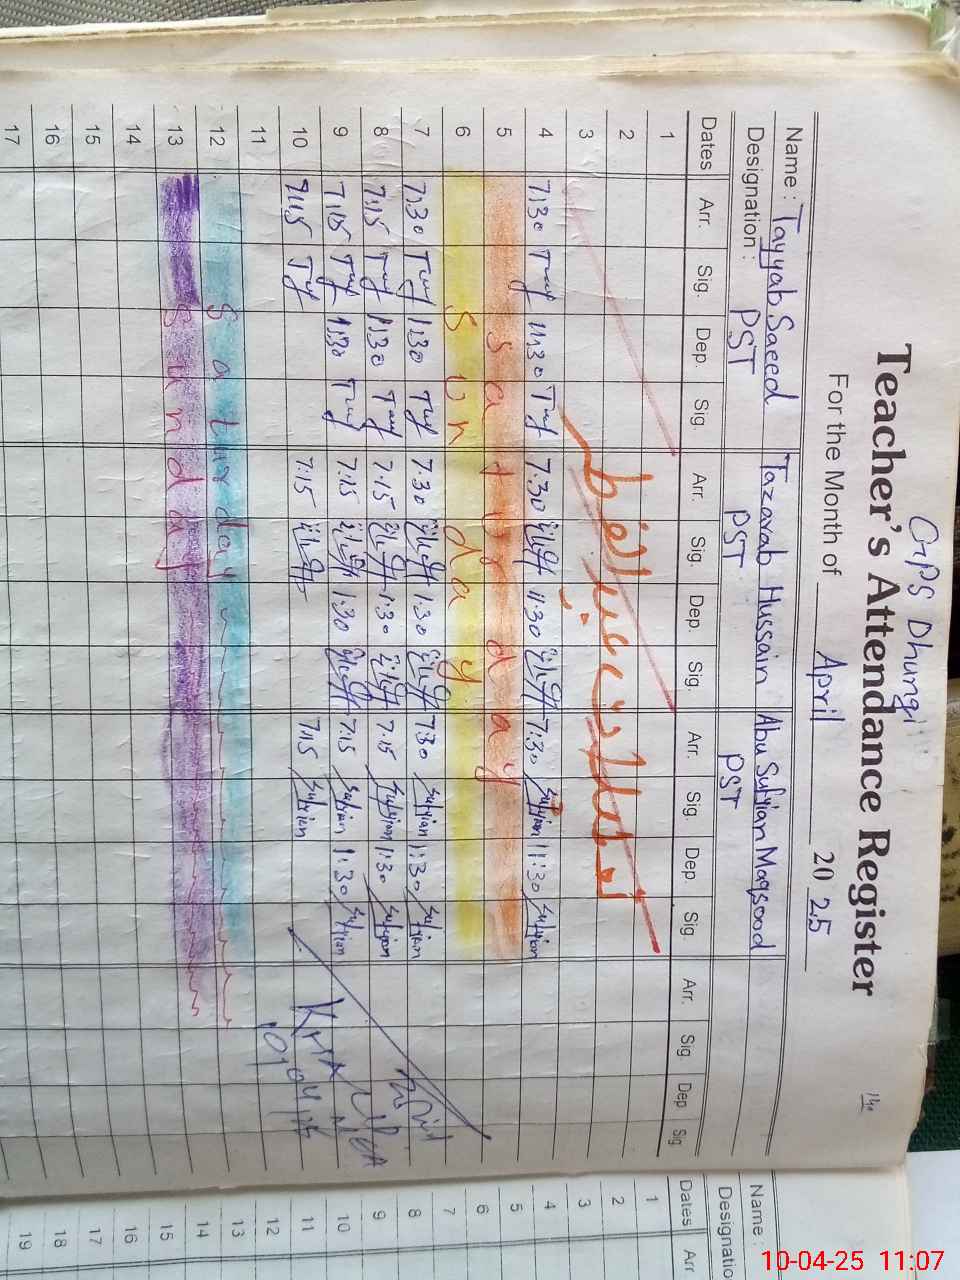 GPS Dhungi
Teacher's Attendance Register
For the Month of April 2025
Name : Tayyab Saeed Tazarab Hussain Abu Sufyian Maqsood
Designation : PST PST PST
Dates Arr. Sig. Dep. Sig. Arr. Sig. Dep. Sig. Arr. Sig. Dep. Sig. Arr. Sig. Dep Sig
1
2
3
4 7:30 11:30 7:30 11:30 7:30 Sufyian 11:30 Sufyian
5 Saturday
6 Sunday
7 7:30 1:30 7.30 1:30 7:30 Sufyian 1:30 Sufyian
8 7:15 1:30 7.15 1:30 7:15 Sufyian 1:30 Sufyian
9 7:15 1:30 7:15 1:30 7:15 Sufyian 1:30 Sufyian
10 7:15 7:15 7:15 Sufyian
11
12 Saturday
13 Sunday
14
15
16
17
Name :
Designatio
Dates Arr
1
2
3
4
5
6
7
8
9
10
11
12
13
14
15
16
17
18
19
10-04-25 11:07